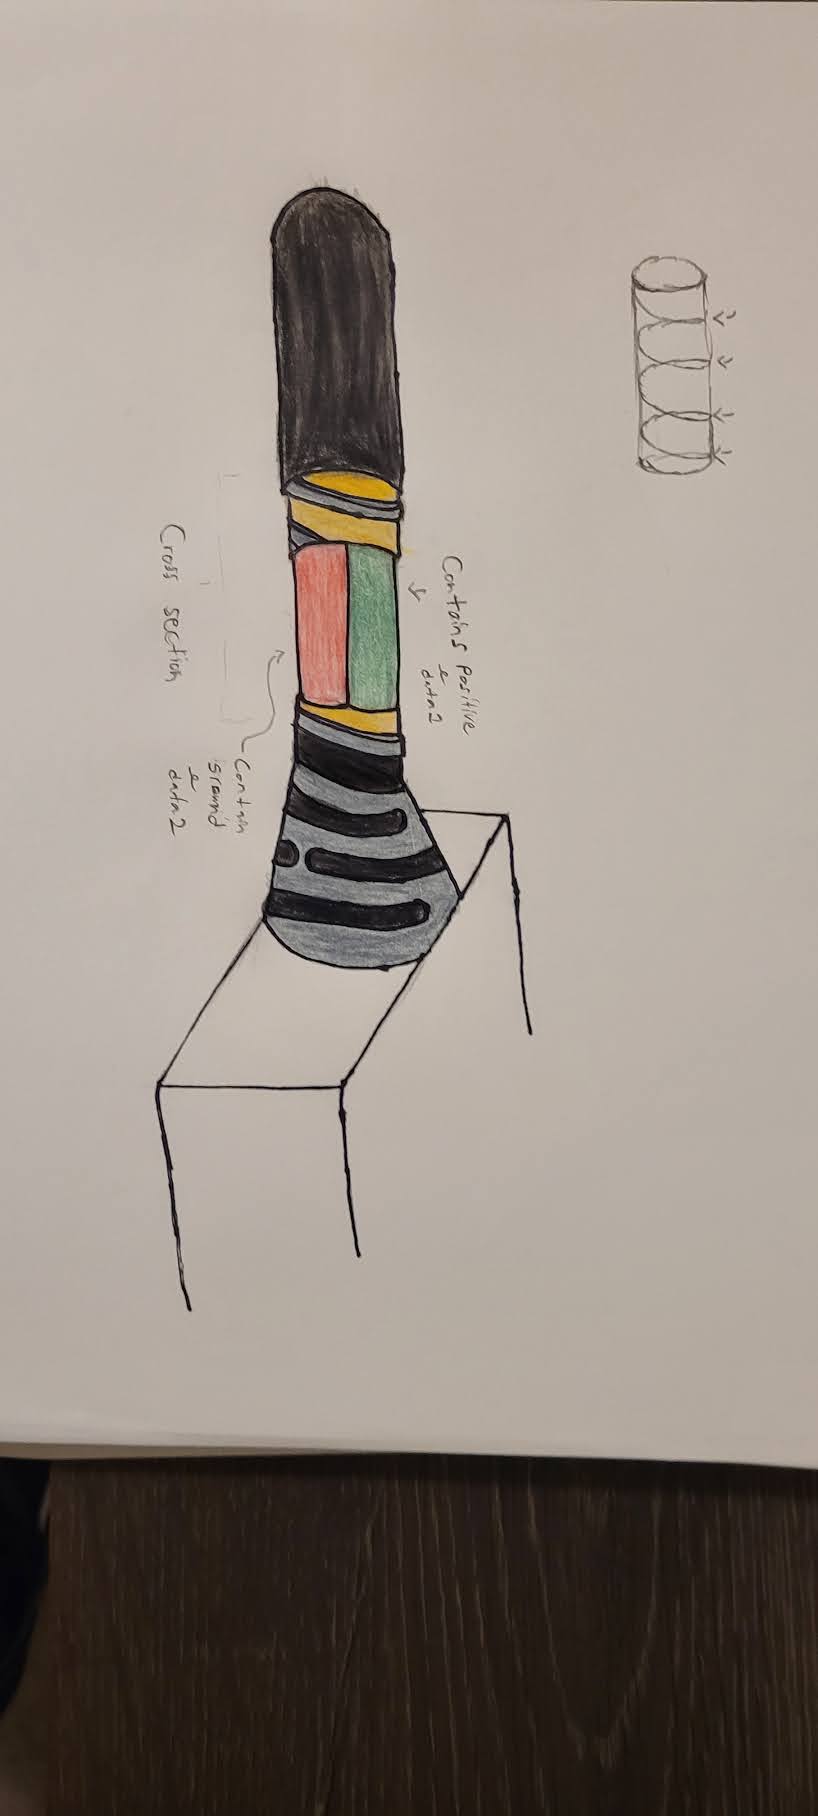 Contains positive
&
data2
Contain
ground
&
data2
Cross section